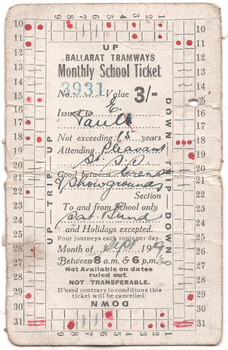 UP
BALLARAT TRAMWAYS
Monthly School Ticket
No. 3931 Value 3/-
Issued to E.
Vault
Not exceeding 15 years
Attending Pleasant
St. S.S.
Good between Grenv
Showgrounds
Section
To and from school only
Sat Sund
and Holidays excepted.
Four journeys each ticket per day.
Month of 19
Between 8 a.m. & 6 p.m.
Not Available on dates
ruled out.
NOT TRANSFERABLE.
If used contrary to conditions this
ticket will be cancelled.
DOWN
UP—TRIP—UP
DOWN
10
11
12
13
14
15
16
17
18
19
20
21
22
23
24
25
26
27
28
29
30
31